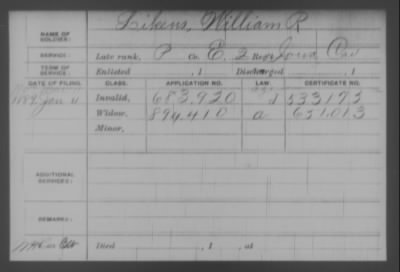 NAME OF SOLDIER: Likens, William R
SERVICE: Late rank, P Co. E, 2 Reg't Iowa Cav
TERM OF SERVICE: Enlisted , 1 Discharged , 1
DATE OF FILING. CLASS. APPLICATION NO. LAW. CERTIFICATE NO.
Jan 4 Invalid, 683.920 533175
Widow, 894.410 a 651.013
Minor,
ADDITIONAL SERVICES:
REMARKS:
Died , 1 , at